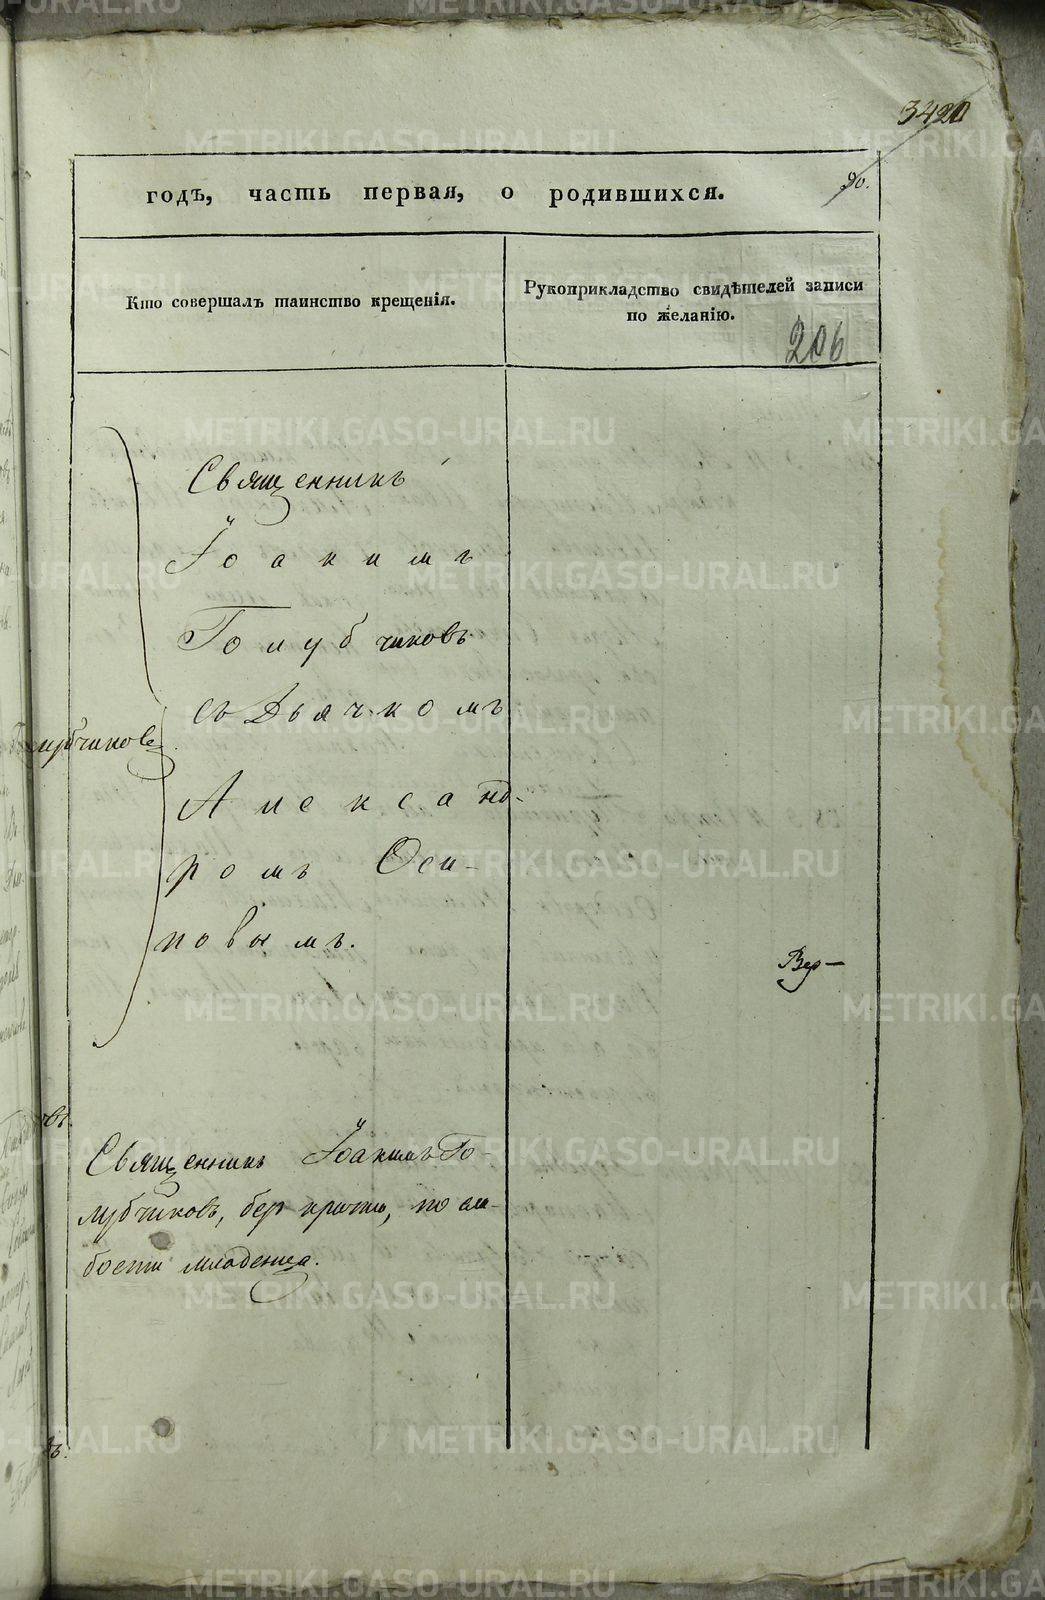 3420
90.
годъ, часть первая, о родившихся.
Кто совершалъ таинство крещенія.
Рукоприкладство свидѣтелей записи
по желанію.
206
Священникъ
Іоакимъ
Голубчиковъ
съ Дьячкомъ
Александ-
ромъ Оси-
повымъ.
Вер-
Священникъ Іоакимъ Го-
лубчиковъ, бер кратко, по сла-
бости младенца.
METRIKI.GASO-URAL.RU